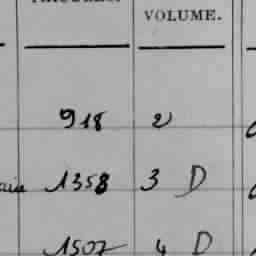 VOLUME.
918 2
1358 3 D
1507 4 D